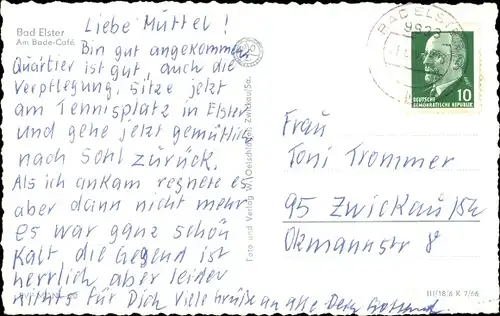 Bad Elster
Am Bade-Café
Liebe Muttel!
Bin gut angekommen,
Quartier ist gut, auch die
Verpflegung. Sitze jetzt
am Tennisplatz in Elster
und gehe jetzt gemütlich
nach Sohl zurück.
Als ich ankam regnete es
aber dann nicht mehr
es war ganz schön
Kalt die Gegend ist
herrlich aber leider
nichts für Dich Viele Grüße an alle Dein
Foto und Verlag W. Oelschlägel, Zwickau/Sa.
BAD ELSTER
9933
DEUTSCHE
DEMOKRATISCHE REPUBLIK
10
Frau
Toni Trommer
95 Zwickau/Sa
Okmannstr 8
III/18/6 K 7/66